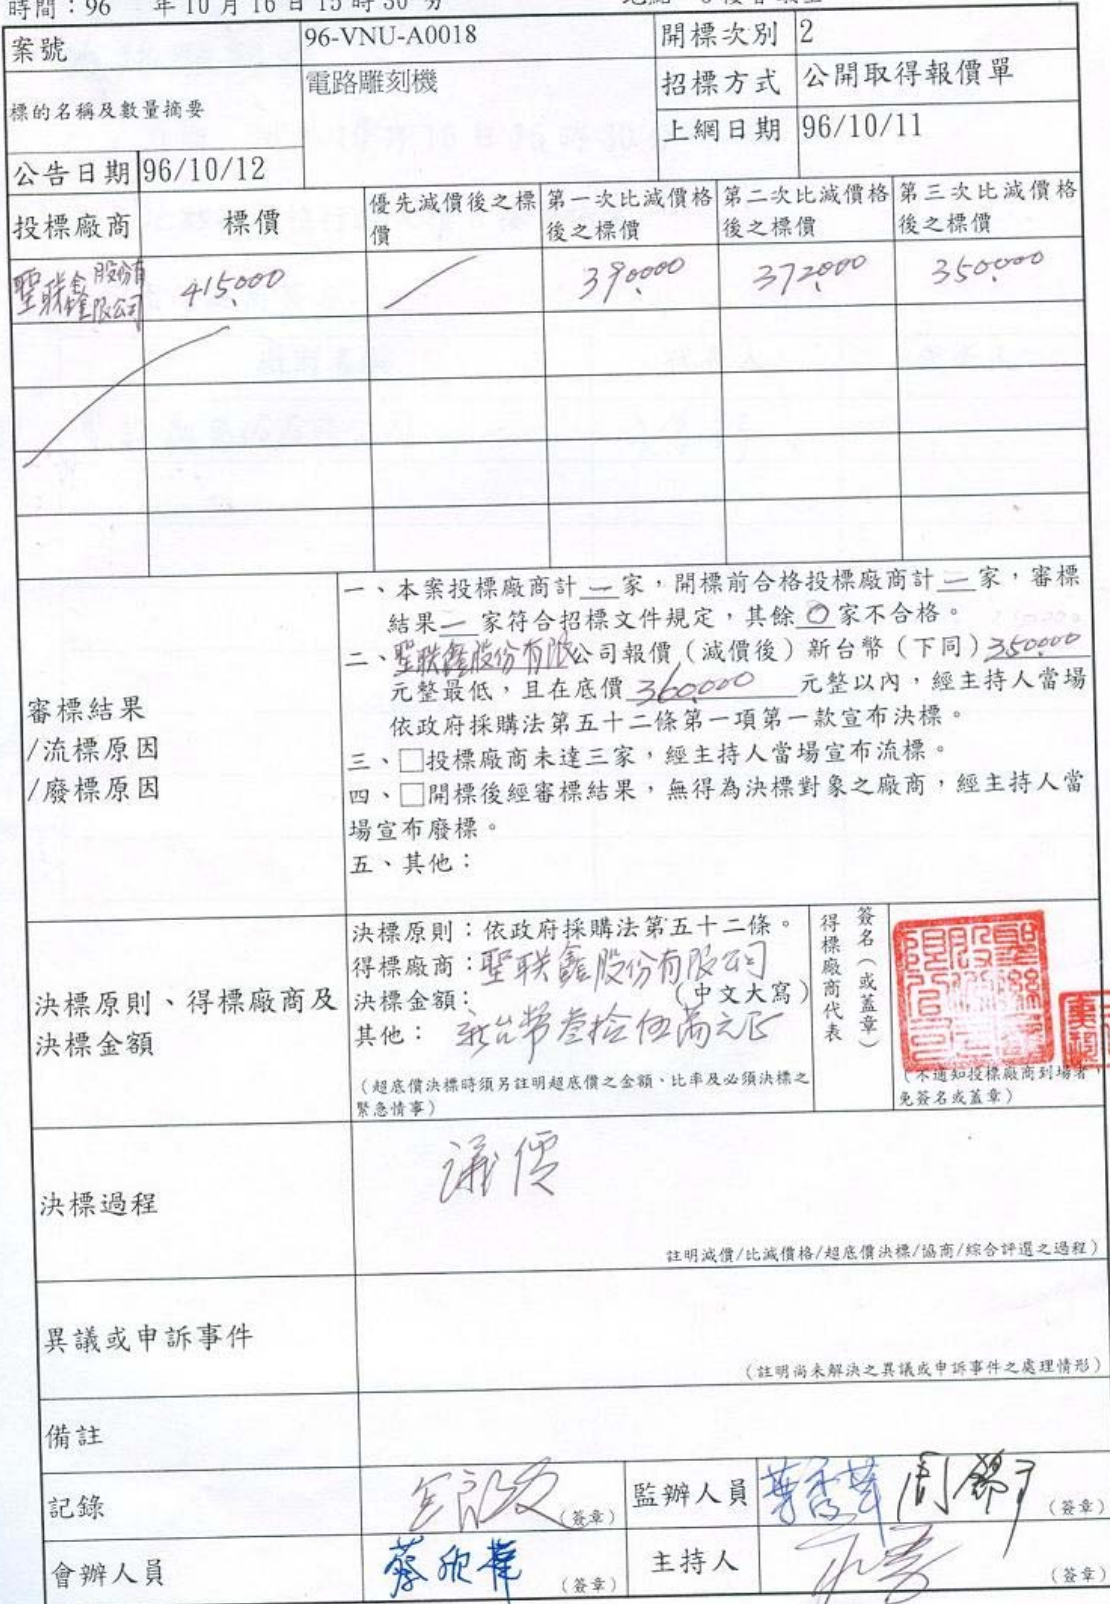 時間：96 年 10 月 16 日 15 時 30 分
案號 96-VNU-A0018 開標次別 2
標的名稱及數量摘要 電路雕刻機 招標方式 公開取得報價單
上網日期 96/10/11
公告日期 96/10/12
投標廠商 標價 優先減價後之標價 第一次比減價格後之標價 第二次比減價格後之標價 第三次比減價格後之標價
聖联鑫股份有限公司 415000 390000 372000 350000
審標結果
/流標原因
/廢標原因
一、本案投標廠商計一家，開標前合格投標廠商計一家，審標
結果一家符合招標文件規定，其餘0家不合格。
二、聖联鑫股份有限公司報價（減價後）新台幣（下同）350000
元整最低，且在底價360000元整以內，經主持人當場
依政府採購法第五十二條第一項第一款宣布決標。
三、□投標廠商未達三家，經主持人當場宣布流標。
四、□開標後經審標結果，無得為決標對象之廠商，經主持人當
場宣布廢標。
五、其他：
決標原則、得標廠商及
決標金額
決標原則：依政府採購法第五十二條。
得標廠商：聖联鑫股份有限公司
決標金額： （中文大寫）
其他： 新台幣叁拾伍萬元正
（超底價決標時須另註明超底價之金額、比率及必須決標之
緊急情事）
得標廠商代表
簽名（或蓋章）
（不通知投標廠商到場者，
免簽名或蓋章）
決標過程
議價
註明減價/比減價格/超底價決標/協商/綜合評選之過程）
異議或申訴事件
（註明尚未解決之異議或申訴事件之處理情形）
備註
記錄 （簽章） 監辦人員 （簽章）
會辦人員 蔡欣樺 （簽章） 主持人 （簽章）